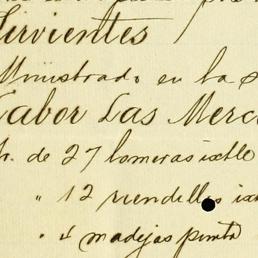 Sirvientes
Ministrado en la
Labor Las Merc
de 27 lomeras ixtle
" 12 riendillas ixt
" 1 madejas punta